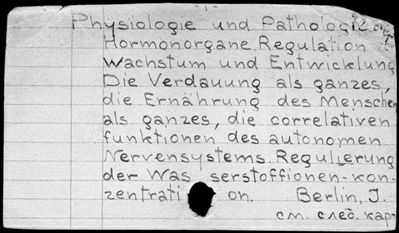 Physiologie und Pathologie
Hormonorgane. Regulation
Wachstum und Entwicklung
Die Verdauung als ganzes,
die Ernährung des Menschen
als ganzes, die correlativen
funktionen des autonomen
Nervensystems. Regulierung
der Was serstoffionen-kon-
zentrati on. Berlin, J.
см. след. кар